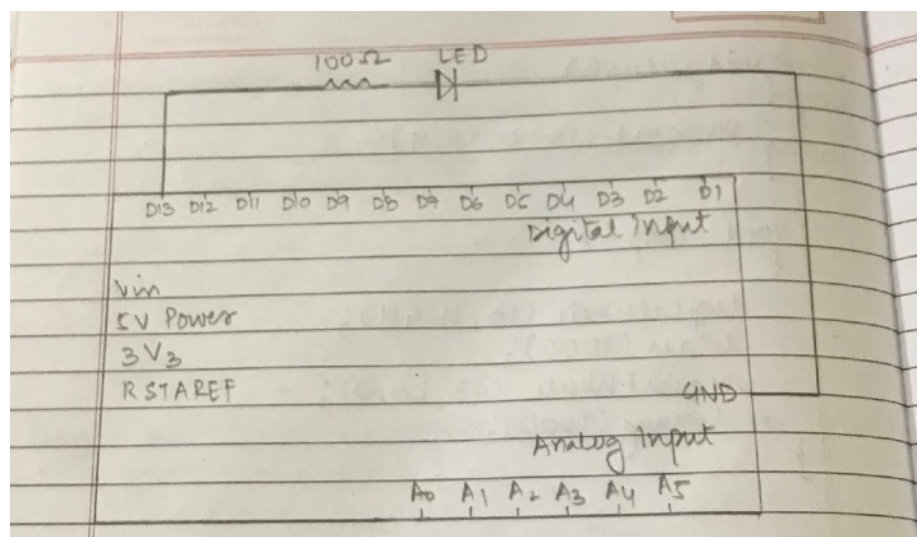 100Ω LED
D13 D12 D11 D10 D9 D8 D7 D6 D5 D4 D3 D2 D1
Digital Input
Vin
5V Power
3V3
RSTAREF
GND
Analog Input
A0 A1 A2 A3 A4 A5